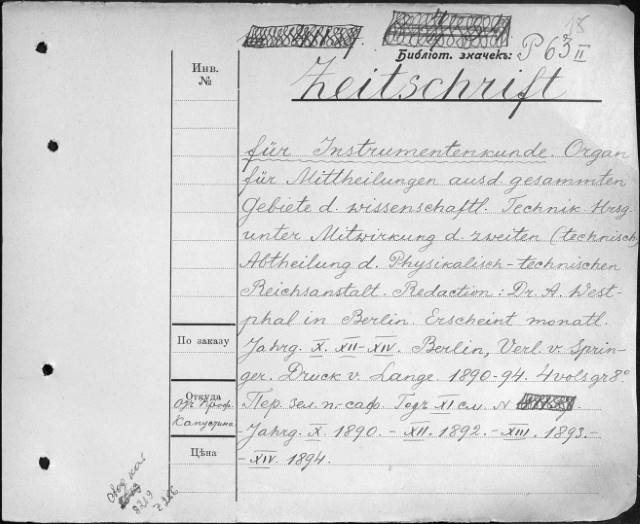 18
Библіот. значекъ: P 63 II
Инв.
№
Zeitschrift
für Instrumentenkunde. Organ
für Mittheilungen aus d. gesammten
Gebiete d. wissenschaftl. Technik. Hrsg.
unter Mitwirkung d. zweiten (technisch)
Abtheilung d. Physikalisch-technischen
Reichsanstalt. Redaction: Dr. A. West-
phal in Berlin. Erscheint monatl.
По заказу
Jahrg. X. XII-XIV. Berlin, Verl. v. Sprin-
ger. Druck v. Lange. 1890-94. 4 vols gr 8°
Откуда
Отъ Проф.
Капустина
Пер. зел. п.-саф. Годъ XI см. №
Jahrg. X. 1890. - XII. 1892. - XIII. 1893. -
- XIV. 1894.
Цѣна
8219